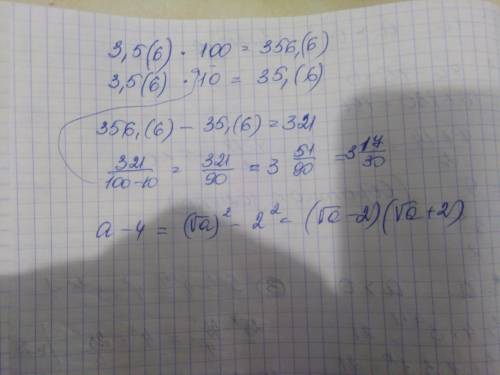 3,5(6) · 100 = 356,(6)
3,5(6) · 10 = 35,(6)
356,(6) − 35,(6) = 321
321/100−10 = 321/90 = 3 51/90 = 3 17/30
a − 4 = (√a)² − 2² = (√a − 2)(√a + 2)